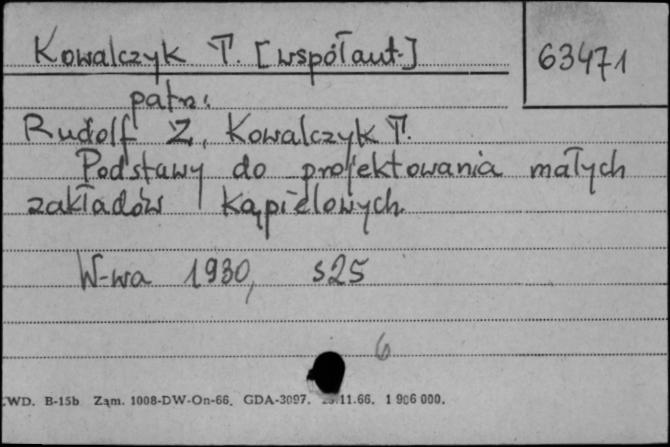 Kowalczyk T. [współaut.]
63471
patrz:
Rudolf Z, Kowalczyk T.
Podstawy do projektowania małych
zakładów kąpielowych.
W-wa 1930, s25
6
WD. B-15b Zam. 1008-DW-On-66. GDA-3097. .11.66. 1 906 000.